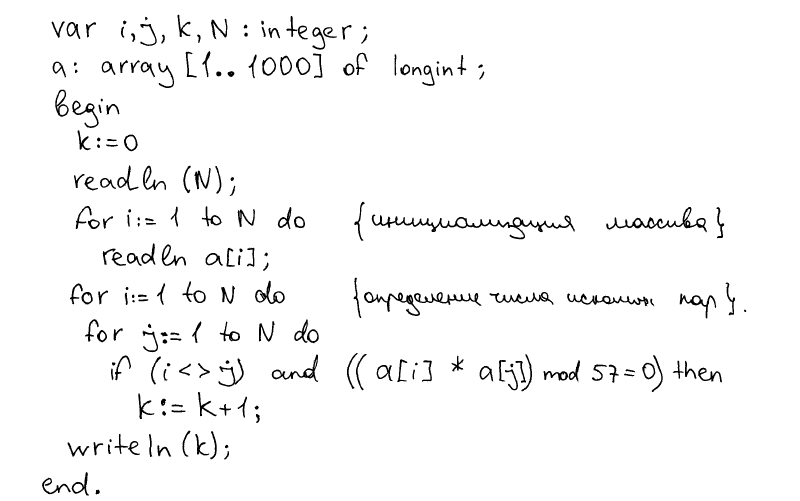 var i,j, k, N : integer;
a: array [1.. 1000] of longint;
begin
k:=0
readln (N);
for i:= 1 to N do {инициализация массива}
readln a[i];
for i:=1 to N do {определение числа искомых пар}.
for j:= 1 to N do
if (i<>j) and ((a[i] * a[j]) mod 57=0) then
k:= k+1;
writeln (k);
end.